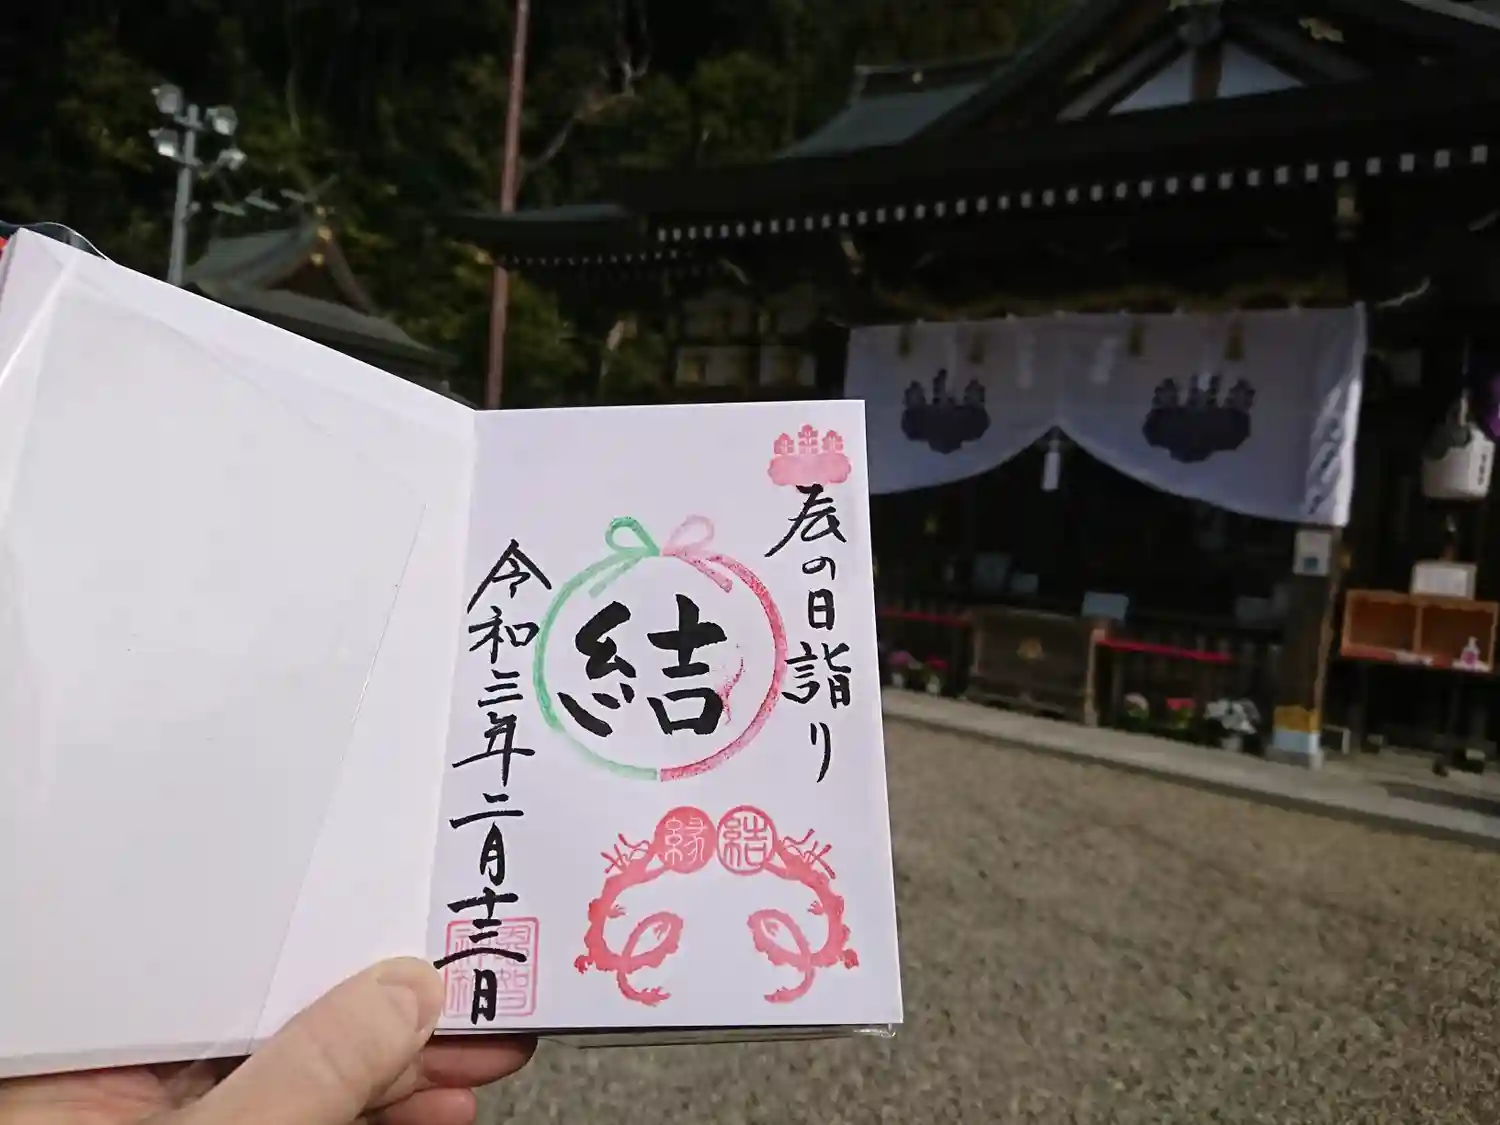 辰の日詣り
結
令和三年二月十三日
縁結
恩智
神社